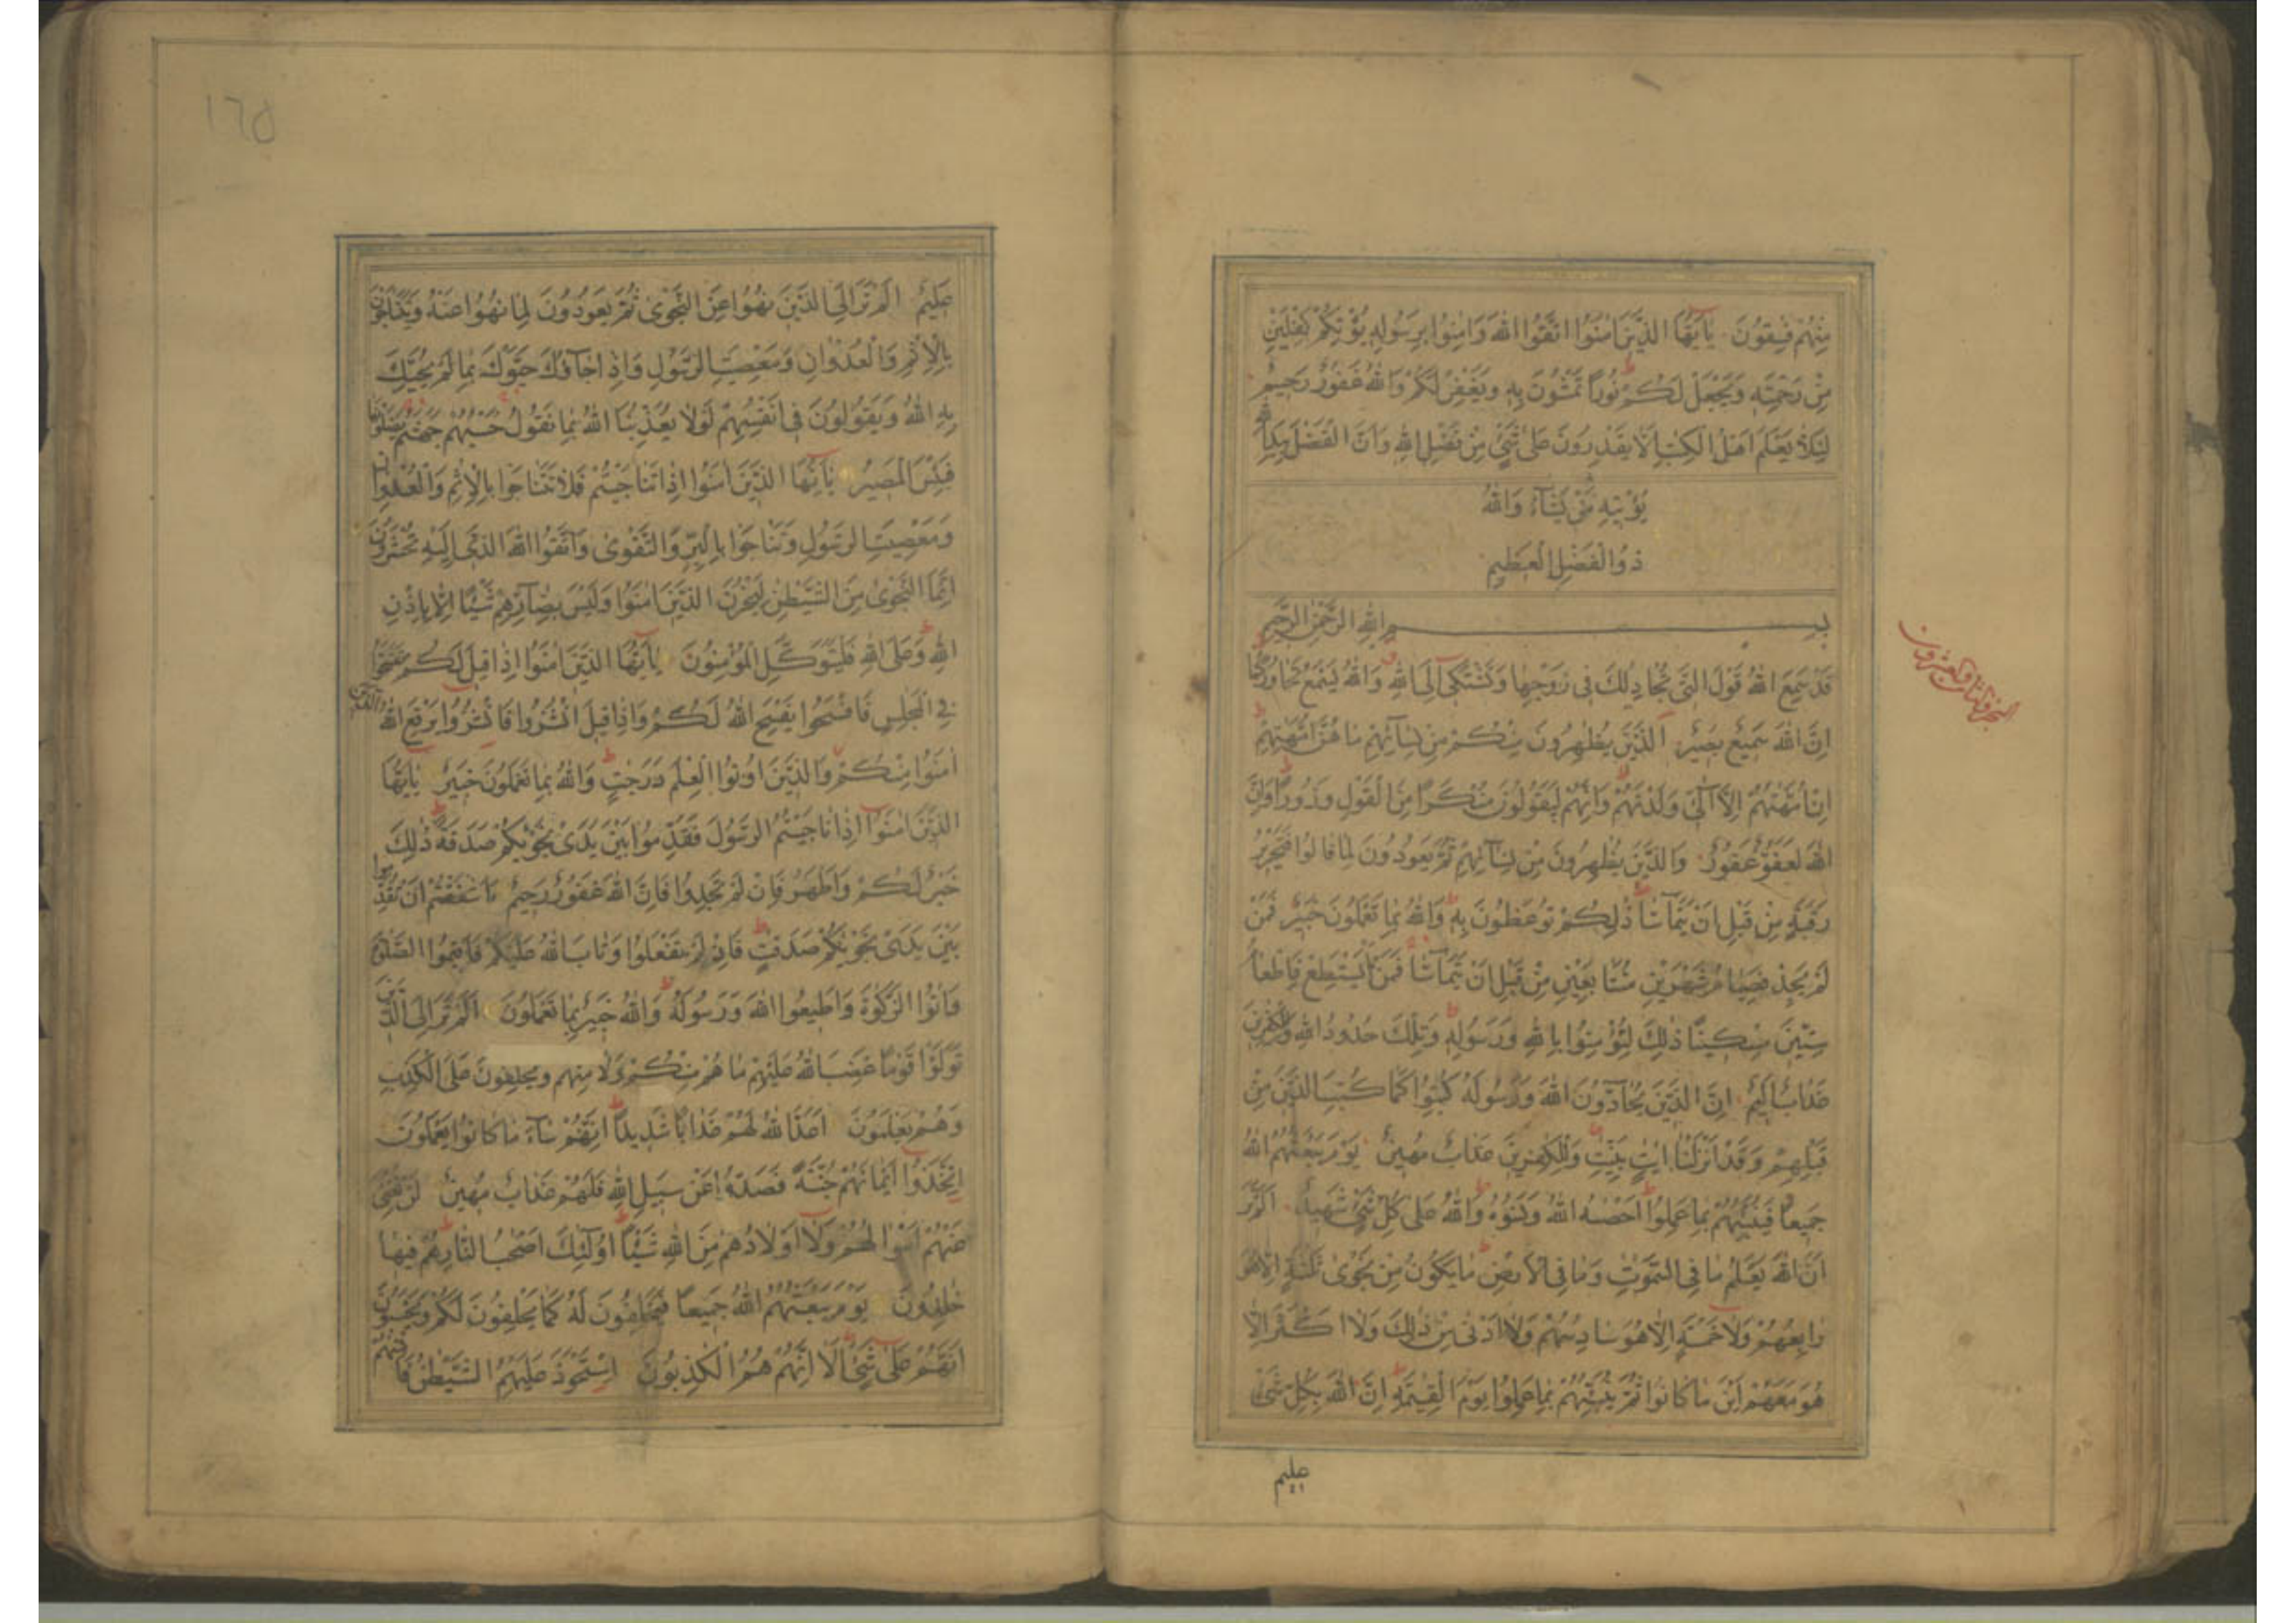 مِنْهُمْ فٰسِقُونَ يٰٓاَيُّهَا الَّذِينَ اٰمَنُوا اتَّقُوا اللّٰهَ وَاٰمِنُوا بِرَسُولِهٖ يُؤْتِكُمْ كِفْلَيْنِ
مِنْ رَحْمَتِهٖ وَيَجْعَلْ لَكُمْ نُورًا تَمْشُونَ بِهٖ وَيَغْفِرْ لَكُمْ وَاللّٰهُ غَفُورٌ رَحِيمٌ
لِئَلَّا يَعْلَمَ اَهْلُ الْكِتٰبِ اَلَّا يَقْدِرُونَ عَلٰى شَيْءٍ مِنْ فَضْلِ اللّٰهِ وَاَنَّ الْفَضْلَ بِيَدِ اللّٰهِ
يُؤْتِيهِ مَنْ يَشَآءُ وَاللّٰهُ
ذُو الْفَضْلِ الْعَظِيمِ
بِسْمِ اللّٰهِ الرَّحْمٰنِ الرَّحِيمِ
قَدْ سَمِعَ اللّٰهُ قَوْلَ الَّتِي تُجَادِلُكَ فِي زَوْجِهَا وَتَشْتَكِٓي اِلَى اللّٰهِ وَاللّٰهُ يَسْمَعُ تَحَاوُرَكُمَا
اِنَّ اللّٰهَ سَمِيعٌ بَصِيرٌ اَلَّذِينَ يُظٰهِرُونَ مِنْكُمْ مِنْ نِسَآئِهِمْ مَا هُنَّ اُمَّهٰتِهِمْ
اِنْ اُمَّهٰتُهُمْ اِلَّا الّٰٓئِي وَلَدْنَهُمْ وَاِنَّهُمْ لَيَقُولُونَ مُنْكَرًا مِنَ الْقَوْلِ وَزُورًا وَاِنَّ
اللّٰهَ لَعَفُوٌّ غَفُورٌ وَالَّذِينَ يُظٰهِرُونَ مِنْ نِسَآئِهِمْ ثُمَّ يَعُودُونَ لِمَا قَالُوا فَتَحْرِيرُ
رَقَبَةٍ مِنْ قَبْلِ اَنْ يَتَمَآسَّا ذٰلِكُمْ تُوعَظُونَ بِهٖ وَاللّٰهُ بِمَا تَعْمَلُونَ خَبِيرٌ فَمَنْ
لَمْ يَجِدْ فَصِيَامُ شَهْرَيْنِ مُتَتَابِعَيْنِ مِنْ قَبْلِ اَنْ يَتَمَآسَّا فَمَنْ لَمْ يَسْتَطِعْ فَاِطْعَامُ
سِتِّينَ مِسْكِينًا ذٰلِكَ لِتُؤْمِنُوا بِاللّٰهِ وَرَسُولِهٖ وَتِلْكَ حُدُودُ اللّٰهِ وَلِلْكٰفِرِينَ
عَذَابٌ اَلِيمٌ اِنَّ الَّذِينَ يُحَآدُّونَ اللّٰهَ وَرَسُولَهُ كُبِتُوا كَمَا كُبِتَ الَّذِينَ مِنْ
قَبْلِهِمْ وَقَدْ اَنْزَلْنَا اٰيٰتٍ بَيِّنٰتٍ وَلِلْكٰفِرِينَ عَذَابٌ مُهِينٌ يَوْمَ يَبْعَثُهُمُ اللّٰهُ
جَمِيعًا فَيُنَبِّئُهُمْ بِمَا عَمِلُوا اَحْصٰىهُ اللّٰهُ وَنَسُوهُ وَاللّٰهُ عَلٰى كُلِّ شَيْءٍ شَهِيدٌ اَلَمْ تَرَ
اَنَّ اللّٰهَ يَعْلَمُ مَا فِي السَّمٰوٰتِ وَمَا فِي الْاَرْضِ مَا يَكُونُ مِنْ نَجْوٰى ثَلٰثَةٍ اِلَّا هُوَ
رَابِعُهُمْ وَلَا خَمْسَةٍ اِلَّا هُوَ سَادِسُهُمْ وَلَا اَدْنٰى مِنْ ذٰلِكَ وَلَا اَكْثَرَ اِلَّا
هُوَ مَعَهُمْ اَيْنَ مَا كَانُوا ثُمَّ يُنَبِّئُهُمْ بِمَا عَمِلُوا يَوْمَ الْقِيٰمَةِ اِنَّ اللّٰهَ بِكُلِّ شَيْءٍ
عليم
١٦٥
عَلِيمٌ اَلَمْ تَرَ اِلَى الَّذِينَ نُهُوا عَنِ النَّجْوٰى ثُمَّ يَعُودُونَ لِمَا نُهُوا عَنْهُ وَيَتَنَاجَوْنَ
بِالْاِثْمِ وَالْعُدْوَانِ وَمَعْصِيَتِ الرَّسُولِ وَاِذَا جَآؤُكَ حَيَّوْكَ بِمَا لَمْ يُحَيِّكَ
بِهِ اللّٰهُ وَيَقُولُونَ فِي اَنْفُسِهِمْ لَوْلَا يُعَذِّبُنَا اللّٰهُ بِمَا نَقُولُ حَسْبُهُمْ جَهَنَّمُ يَصْلَوْنَهَا
فَبِئْسَ الْمَصِيرُ يٰٓاَيُّهَا الَّذِينَ اٰمَنُوا اِذَا تَنَاجَيْتُمْ فَلَا تَتَنَاجَوْا بِالْاِثْمِ وَالْعُدْوَانِ
وَمَعْصِيَتِ الرَّسُولِ وَتَنَاجَوْا بِالْبِرِّ وَالتَّقْوٰى وَاتَّقُوا اللّٰهَ الَّذِي اِلَيْهِ تُحْشَرُونَ
اِنَّمَا النَّجْوٰى مِنَ الشَّيْطٰنِ لِيَحْزُنَ الَّذِينَ اٰمَنُوا وَلَيْسَ بِضَآرِّهِمْ شَيْئًا اِلَّا بِاِذْنِ
اللّٰهِ وَعَلَى اللّٰهِ فَلْيَتَوَكَّلِ الْمُؤْمِنُونَ يٰٓاَيُّهَا الَّذِينَ اٰمَنُوا اِذَا قِيلَ لَكُمْ تَفَسَّحُوا
فِي الْمَجٰلِسِ فَافْسَحُوا يَفْسَحِ اللّٰهُ لَكُمْ وَاِذَا قِيلَ انْشُزُوا فَانْشُزُوا يَرْفَعِ اللّٰهُ الَّذِينَ
اٰمَنُوا مِنْكُمْ وَالَّذِينَ اُوتُوا الْعِلْمَ دَرَجٰتٍ وَاللّٰهُ بِمَا تَعْمَلُونَ خَبِيرٌ يٰٓاَيُّهَا
الَّذِينَ اٰمَنُوا اِذَا نَاجَيْتُمُ الرَّسُولَ فَقَدِّمُوا بَيْنَ يَدَيْ نَجْوٰيكُمْ صَدَقَةً ذٰلِكَ
خَيْرٌ لَكُمْ وَاَطْهَرُ فَاِنْ لَمْ تَجِدُوا فَاِنَّ اللّٰهَ غَفُورٌ رَحِيمٌ ءَاَشْفَقْتُمْ اَنْ تُقَدِّمُوا
بَيْنَ يَدَيْ نَجْوٰيكُمْ صَدَقٰتٍ فَاِذْ لَمْ تَفْعَلُوا وَتَابَ اللّٰهُ عَلَيْكُمْ فَاَقِيمُوا الصَّلٰوةَ
وَاٰتُوا الزَّكٰوةَ وَاَطِيعُوا اللّٰهَ وَرَسُولَهُ وَاللّٰهُ خَبِيرٌ بِمَا تَعْمَلُونَ اَلَمْ تَرَ اِلَى الَّذِينَ
تَوَلَّوْا قَوْمًا غَضِبَ اللّٰهُ عَلَيْهِمْ مَا هُمْ مِنْكُمْ وَلَا مِنْهُمْ وَيَحْلِفُونَ عَلَى الْكَذِبِ
وَهُمْ يَعْلَمُونَ اَعَدَّ اللّٰهُ لَهُمْ عَذَابًا شَدِيدًا اِنَّهُمْ سَآءَ مَا كَانُوا يَعْمَلُونَ
اِتَّخَذُوا اَيْمَانَهُمْ جُنَّةً فَصَدُّوا عَنْ سَبِيلِ اللّٰهِ فَلَهُمْ عَذَابٌ مُهِينٌ لَنْ تُغْنِيَ
عَنْهُمْ اَمْوَالُهُمْ وَلَا اَوْلَادُهُمْ مِنَ اللّٰهِ شَيْئًا اُولٰٓئِكَ اَصْحٰبُ النَّارِ هُمْ فِيهَا
خٰلِدُونَ يَوْمَ يَبْعَثُهُمُ اللّٰهُ جَمِيعًا فَيَحْلِفُونَ لَهُ كَمَا يَحْلِفُونَ لَكُمْ وَيَحْسَبُونَ
اَنَّهُمْ عَلٰى شَيْءٍ اَلَا اِنَّهُمْ هُمُ الْكٰذِبُونَ اِسْتَحْوَذَ عَلَيْهِمُ الشَّيْطٰنُ فَاَنْسٰيهُمْ